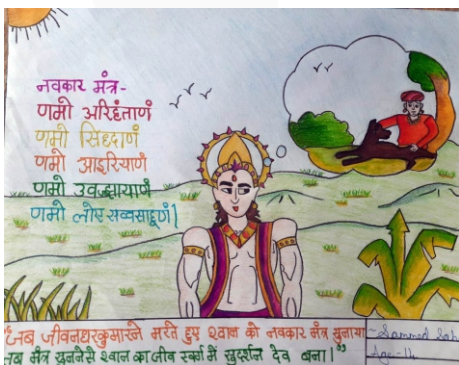 नवकार मंत्र-
णमो अरिहंताणं
णमो सिध्दाणं
णमो आइरियाणं
णमो उवज्झायाणं
णमो लोए सव्वसाहूणं।
"जब जीवनधरकुमारने मरते हुए श्वान को नवकार मंत्र सुनाया
तब मंत्र सुननेसे श्वान का जीव स्वर्ग में सुदर्शन देव बना।"
~ Sammed
Age-14